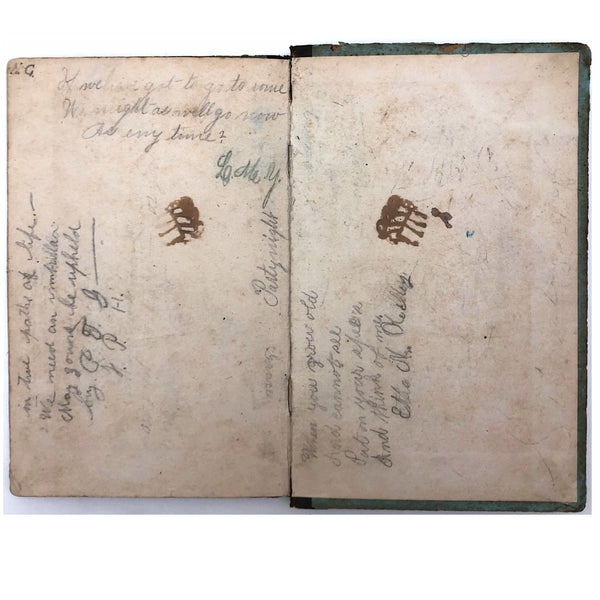 If we have got to go to some
We might as well go now
As eny time?
L. M. Y.
in true paths of life.—
We need an umbrellar
May yours be upheld
by
Party night
When you grow old
And cannot see
Put on your specs
And think of me
Etta M.